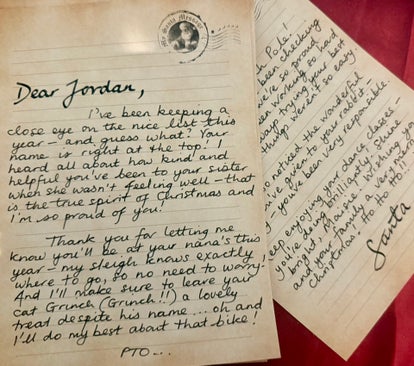 Dear Jordan,
I've been keeping a
close eye on the nice list this
year - and guess what? Your
name is right at the top! I
heard all about how kind and
helpful you've been to your sister
when she wasn't feeling well - that
is the true spirit of Christmas and
I'm so proud of you!
Thank you for letting me
know you'll be at your nana's this
year - my sleigh knows exactly
where to go, so no need to worry!
And I'll make sure to leave your
cat Grinch (Grinch!!) a lovely
treat despite his name ... oh and
I'll do my best about that bike!
PTO...
Pole!
been checking
we're so proud
been working so hard
trying your best
things weren't so easy.
noticed the wonderful
given to your rabbit -
you've been very responsible.
keep enjoying your dance classes -
you're doing brilliantly. Shine
bright, Maisie. Wishing you
and your family a very merry
Christmas! Ho Ho Ho!
Santa